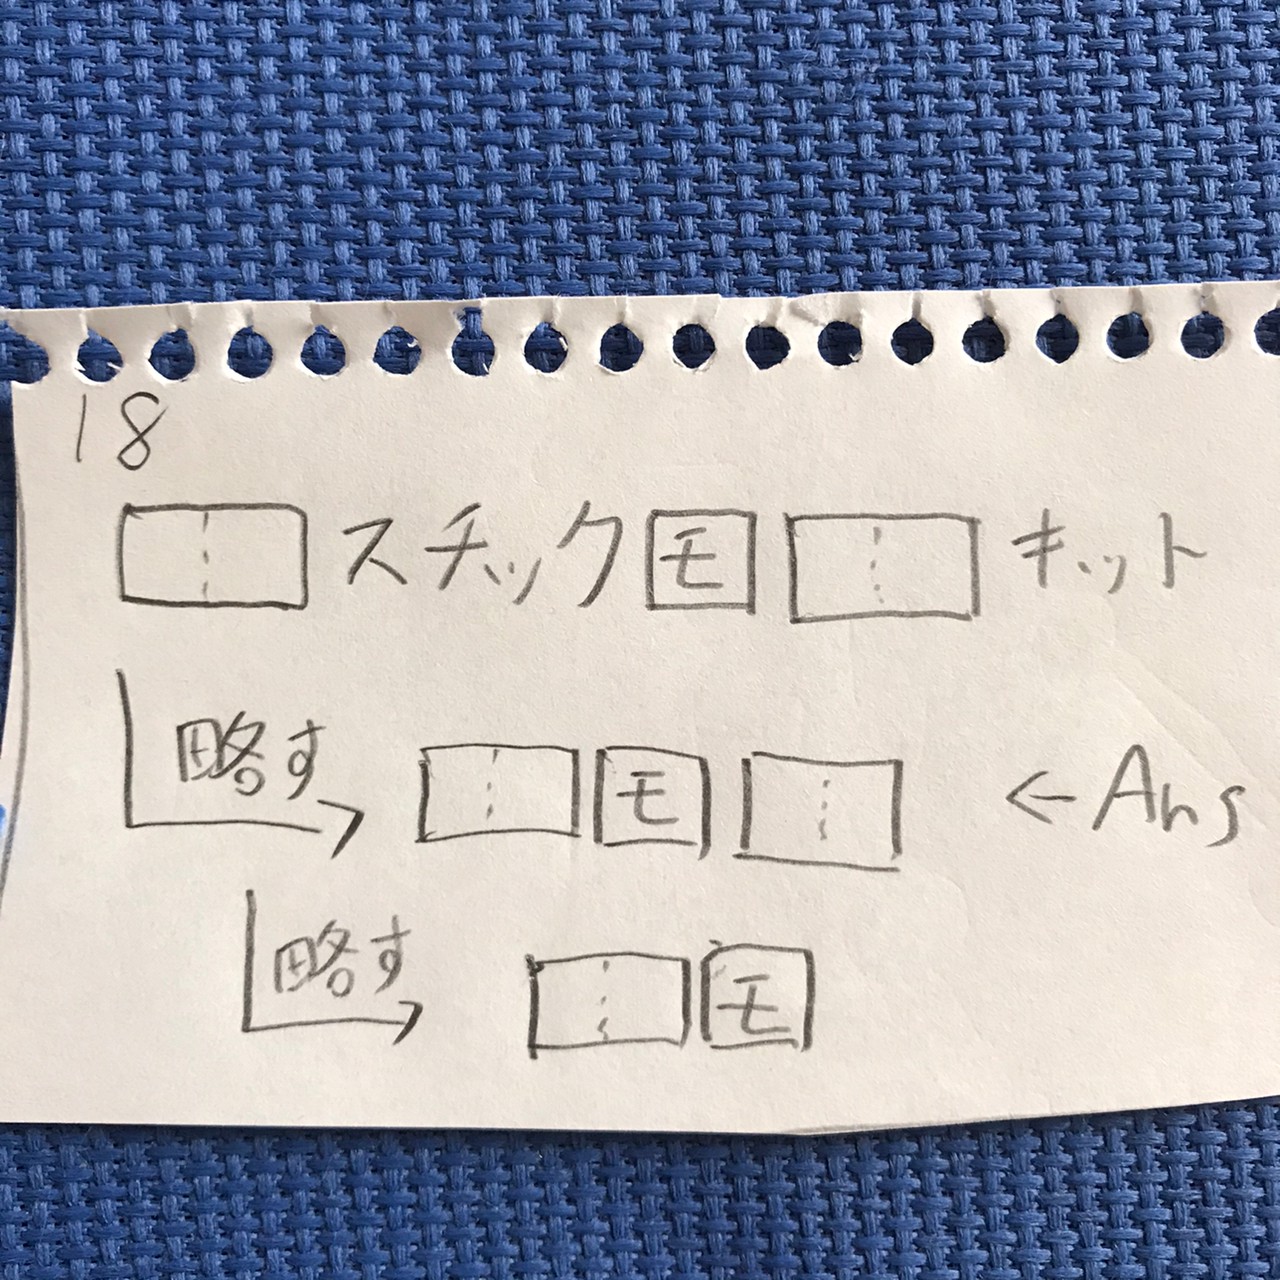 18
スチック モ キット
略す モ ←Ans
略す モ